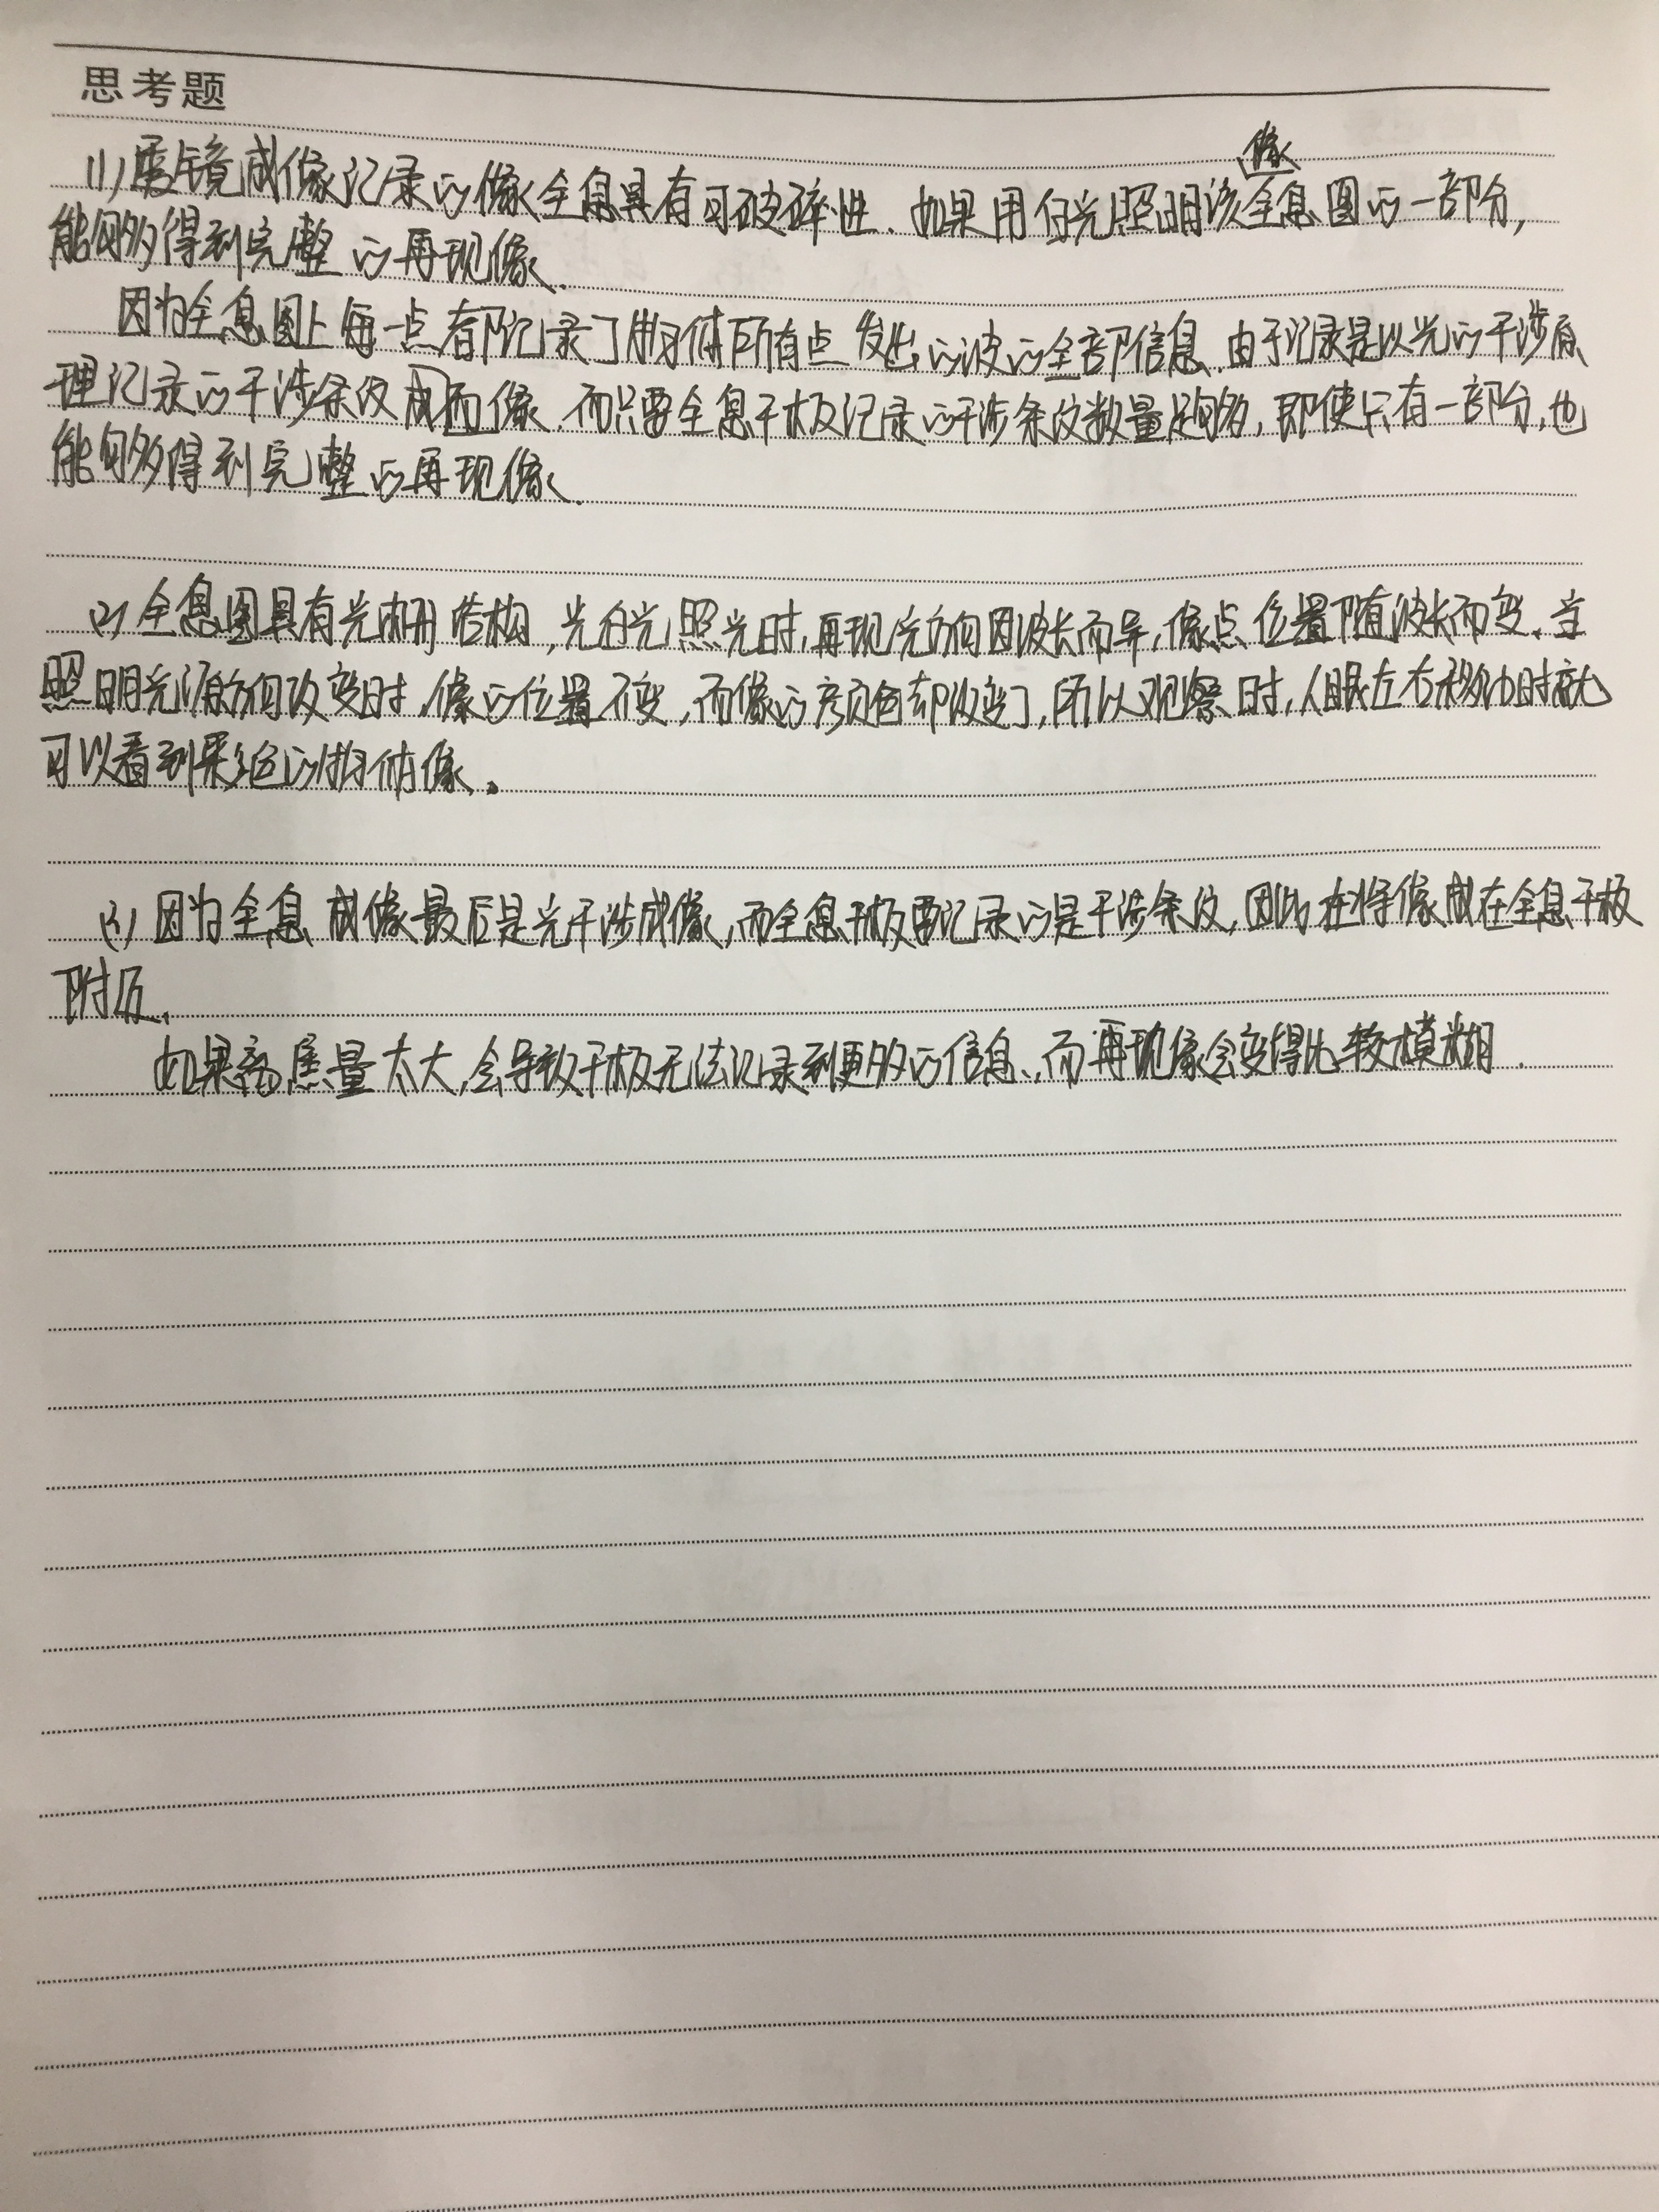 思考题
(1) 透镜成像记录的像全息具有可破碎性.如果用白光照明该像全息图的一部分,
能够得到完整的再现像.
因为全息图上每一点都记录了物体所有点发出的波的全部信息.由于记录是以光的干涉原
理记录的干涉条纹成而像.而只要全息干板记录的干涉条纹数量足够多,即使只有一部分,也
能够得到完整的再现像.
(2) 全息图具有光栅结构,光白光照光时,再现光方向因波长而异,像点位置随波长而变.当
照明光源方向改变时,像的位置不变,而像的颜色却改变了,所以观察时,人眼左右移动时就
可以看到彩色的物体像。
(3) 因为全息成像最后是光干涉成像,而全息干板要记录的是干涉条纹,因此在将像成在全息干板
附近.
如果离焦量太大,会导致干板无法记录到更多的信息,而再现像会变得比较模糊.